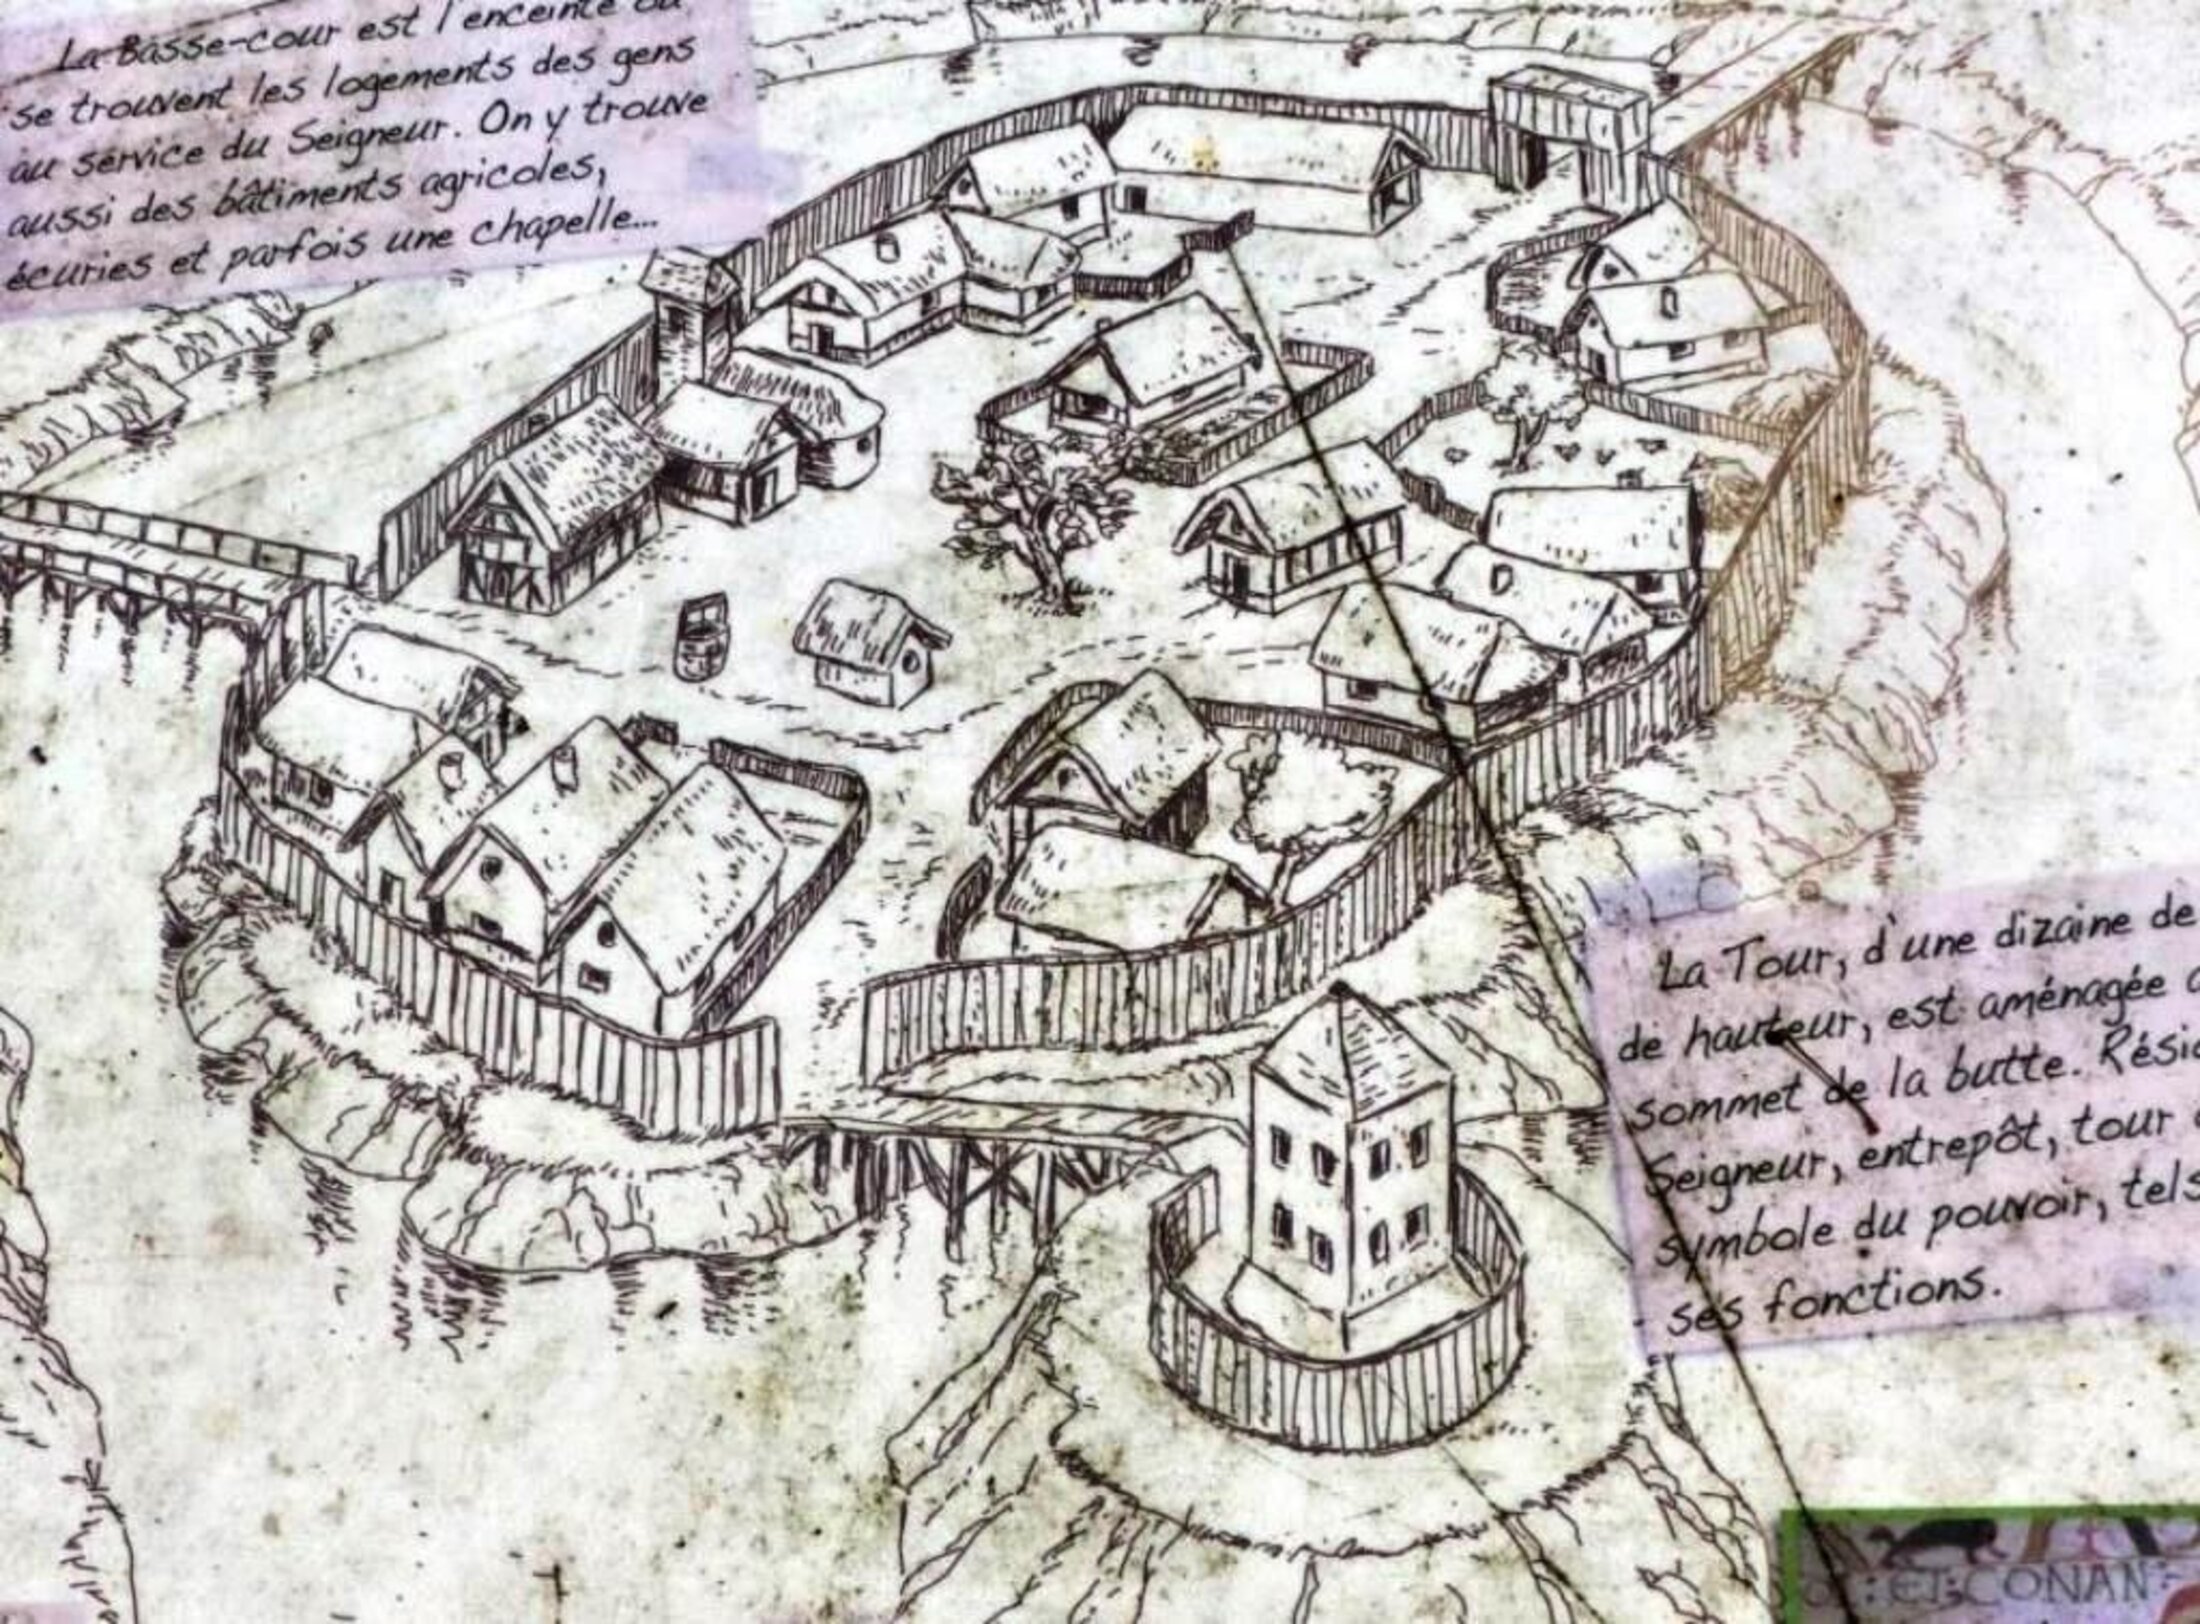 La Basse-cour est l'enceinte où
se trouvent les logements des gens
au service du Seigneur. On y trouve
aussi des bâtiments agricoles,
écuries et parfois une chapelle...
La Tour, d'une dizaine de
de hauteur, est aménagée
sommet de la butte.
Seigneur, entrepôt, tour
symbole du pouvoir, tels
ses fonctions.
: ET : CONAN :